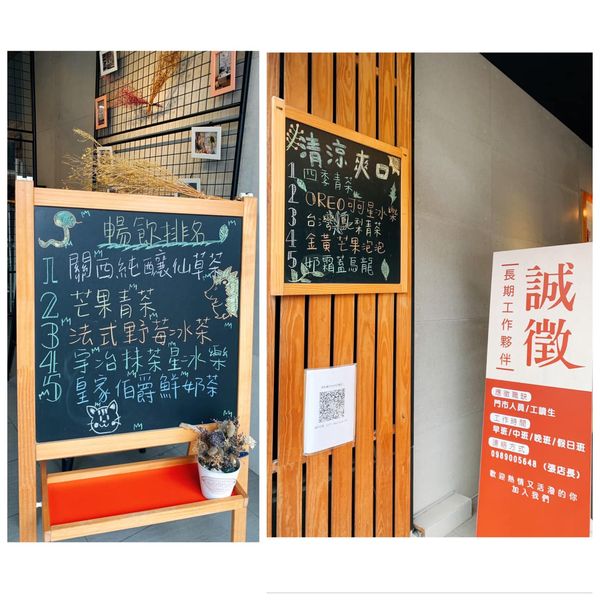 暢飲排名
1 關西純釀仙草茶
2 芒果青茶
3 法式野莓冰茶
4 宇治抹茶星冰樂
5 皇家伯爵鮮奶茶
清涼爽口
1 四季青茶
2 OREO可可星冰樂
3 台灣鳳梨青茶
4 金黃芒果泡泡
5 奶霜蓋烏龍
誠徵
長期工作夥伴
應徵職缺
門市人員/工讀生
工作時間
早班/中班/晚班/假日班
連絡方式
0989005648 (張店長)
歡迎熱情又活潑的你
加入我們